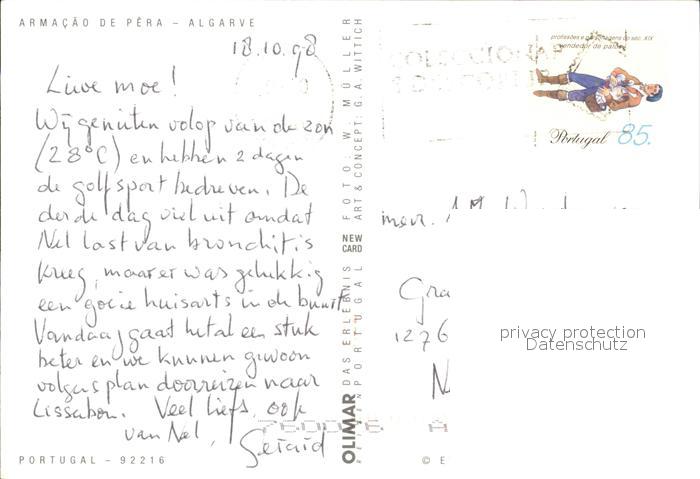 ARMAÇÃO DE PÊRA – ALGARVE
18.10.98
Lieve moe!
Wij genieten volop van de zon
(28°C) en hebben 2 dagen
de golfsport bedreven. De
derde dag viel uit omdat
Nel last van bronchitis
kreeg, maar er was gelukkig
een goeie huisarts in de buurt
Vandaag gaat het al een stuk
beter en we kunnen gewoon
volgens plan doorreizen naar
Lissabon. Veel liefs, ook
van Nel, Gerard
PORTUGAL – 92216
OLIMAR DAS ERLEBNIS
PORTUGAL
NEW
CARD
FOTO: W. MÜLLER
ART & CONCEPT: G.A. WITTICH
profissões e personagens do séc. XIX
vendedor de
Portugal 85.
mevr.
Gra
1276
N
privacy protection
Datenschutz
© E